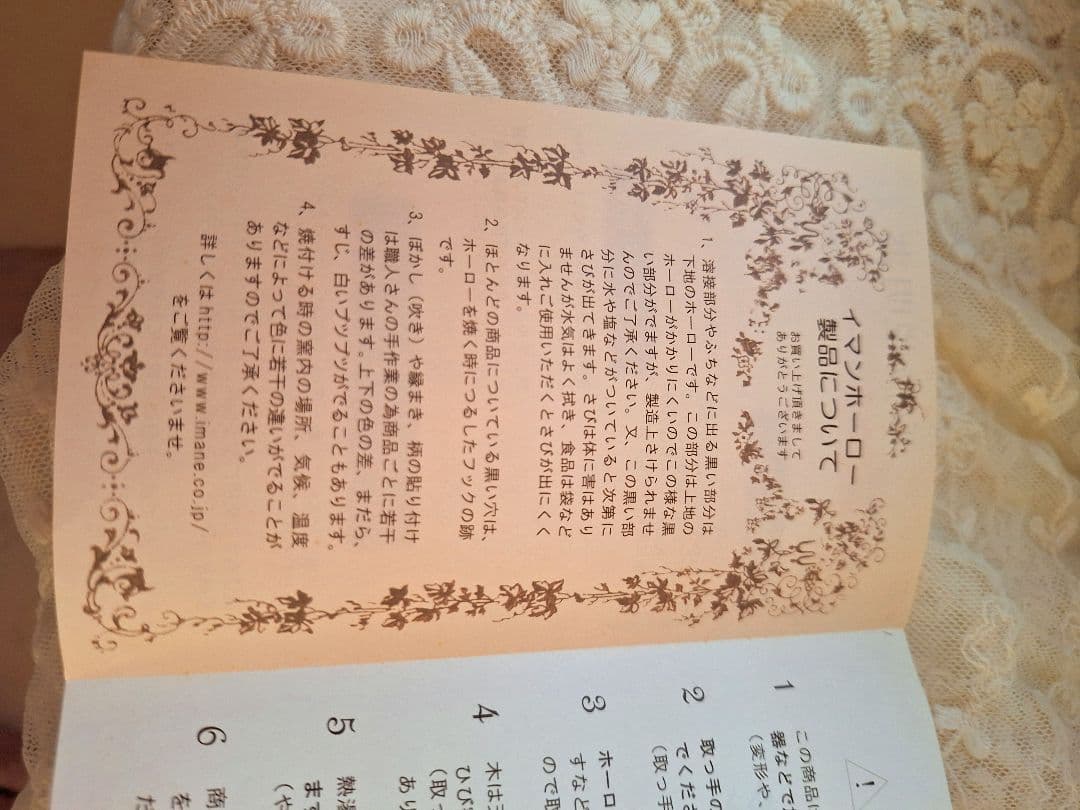 イマンホーロー
製品について
お買い上げ頂きまして
ありがとうございます
1、溶接部分やふちなどに出る黒い部分は
下地のホーローです。この部分は上地の
ホーローがかかりにくいのでこの様な黒
い部分がでますが、製造上さけられませ
んのでご了承ください。又、この黒い部
分に水や塩などがついていると次第に
さびが出てきます。さびは体に害はあり
ませんが水気はよく拭き、食品は袋など
に入れご使用いただくとさびが出にくく
なります。
2、ほとんどの商品についている黒い穴は、
ホーローを焼く時につるしたフックの跡
です。
3、ぼかし（吹き）や縁まき、柄の貼り付け
は職人さんの手作業の為商品ごとに若干
の差があります。上下の色の差、まだら、
すじ、白いブツブツがでることもあります。
4、焼付ける時の窯内の場所、気候、温度
などによって色に若干の違いがでることが
ありますのでご了承ください。
詳しくはhttp://www.imane.co.jp/
をご覧くださいませ。
!
1 この商品
器などで
（変形や、
2 取っ手の
でくださ
（取っ手
3 ホーロ
すなど
ので取
4 木は
ひび
（取っ
あり
5 熱湯
ます
（や
6 商
を
た